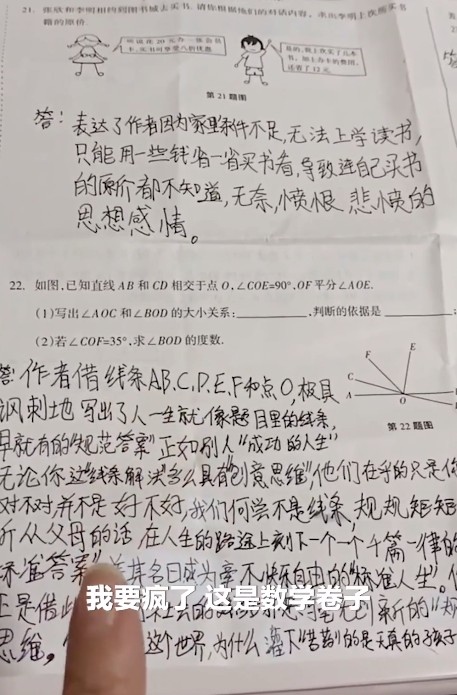 21. 张欣和李明相约到图书城去买书.请你根据他们的对话内容,求出李明上次所买书
籍的原价.
听说花20元办一张会员
卡,买书可享受八折优惠.
是的,我上次买了几本
书,加上办卡的费用,
还省了12元.
第21题图
答: 表达了作者因为家里条件不足,无法上学读书,
只能用一些钱省一省买书看,导致连自己买书
的原价都不知道,无奈,愤恨,悲愤的
思想感情。
22. 如图,已知直线AB和CD相交于点O,∠COE=90°,OF平分∠AOE.
(1)写出∠AOC和∠BOD的大小关系: ,判断的依据是 ;
(2)若∠COF=35°,求∠BOD的度数.
E
F
C
A
O
第22题图
答:作者借线条AB.C.D.E.F和点O,极具
讽刺地写出了人一生就像题目里的线条,
早就有的"规范答案"正如别人"成功的人生"
无论你这"线条解决"多么具有"创意思维",他们在乎的只是你
对不对并不是好不好,我们何尝不是线条,规规矩矩
听从父母的话,在人生的路途上刻下一个一个千篇一律的
标准答案"
成为
不快乐自由的"标准人生"。
思维。
这个世界,为什么灌下"苦药"的是天真的孩子
我要疯了 这是数学卷子